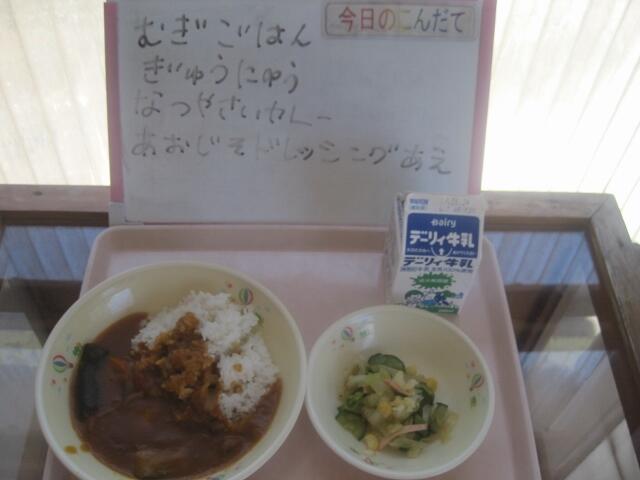 今日のこんだて
むぎごはん
ぎゅうにゅう
なつやさいカレー
あおじそドレッシングあえ
Dairy
デーリィ牛乳
デーリィ牛乳